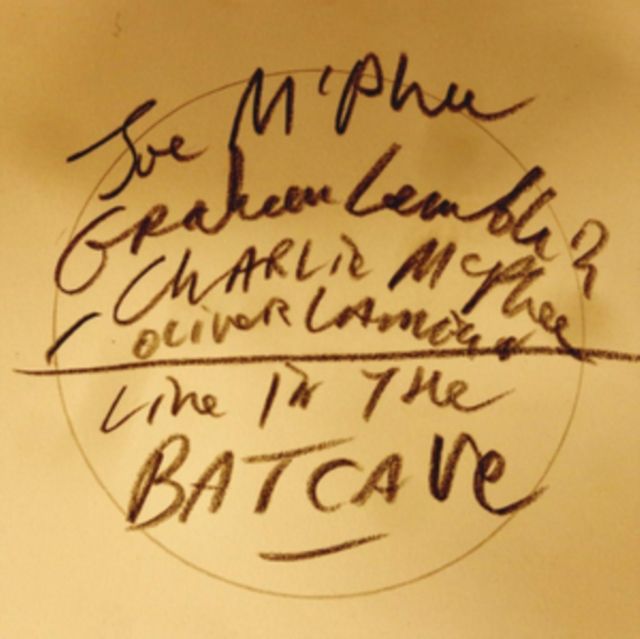 Joe McPhee
Graham Lambkin
Charlie McPhee
Oliver Lambkin
Live in the
BATCAVE